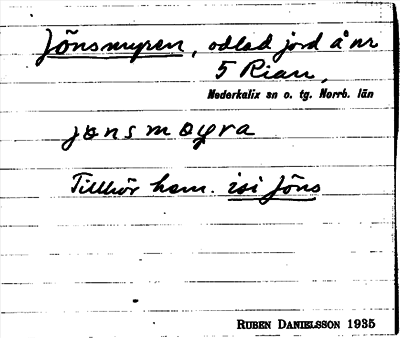 Jönsmyren, odlad jord å nr
5 Rian,
Nederkalix sn o. tg. Norrb. län
jønsmøyra
Tillhör hem. isi Jöns
RUBEN DANIELSSON 1935